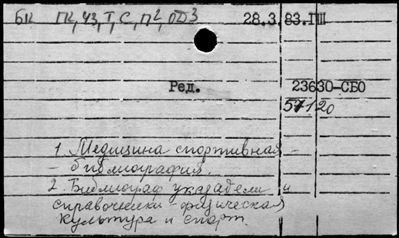 БК ГК, ЧЗ, Т, С, П2, ОДЗ 28.3.83.ГПП
Ред. 23630-СБО
57120
1. Медицина спортивная -
- библиография.
2. Библиограф указатели и
справочники - физическая
культура и спорт.